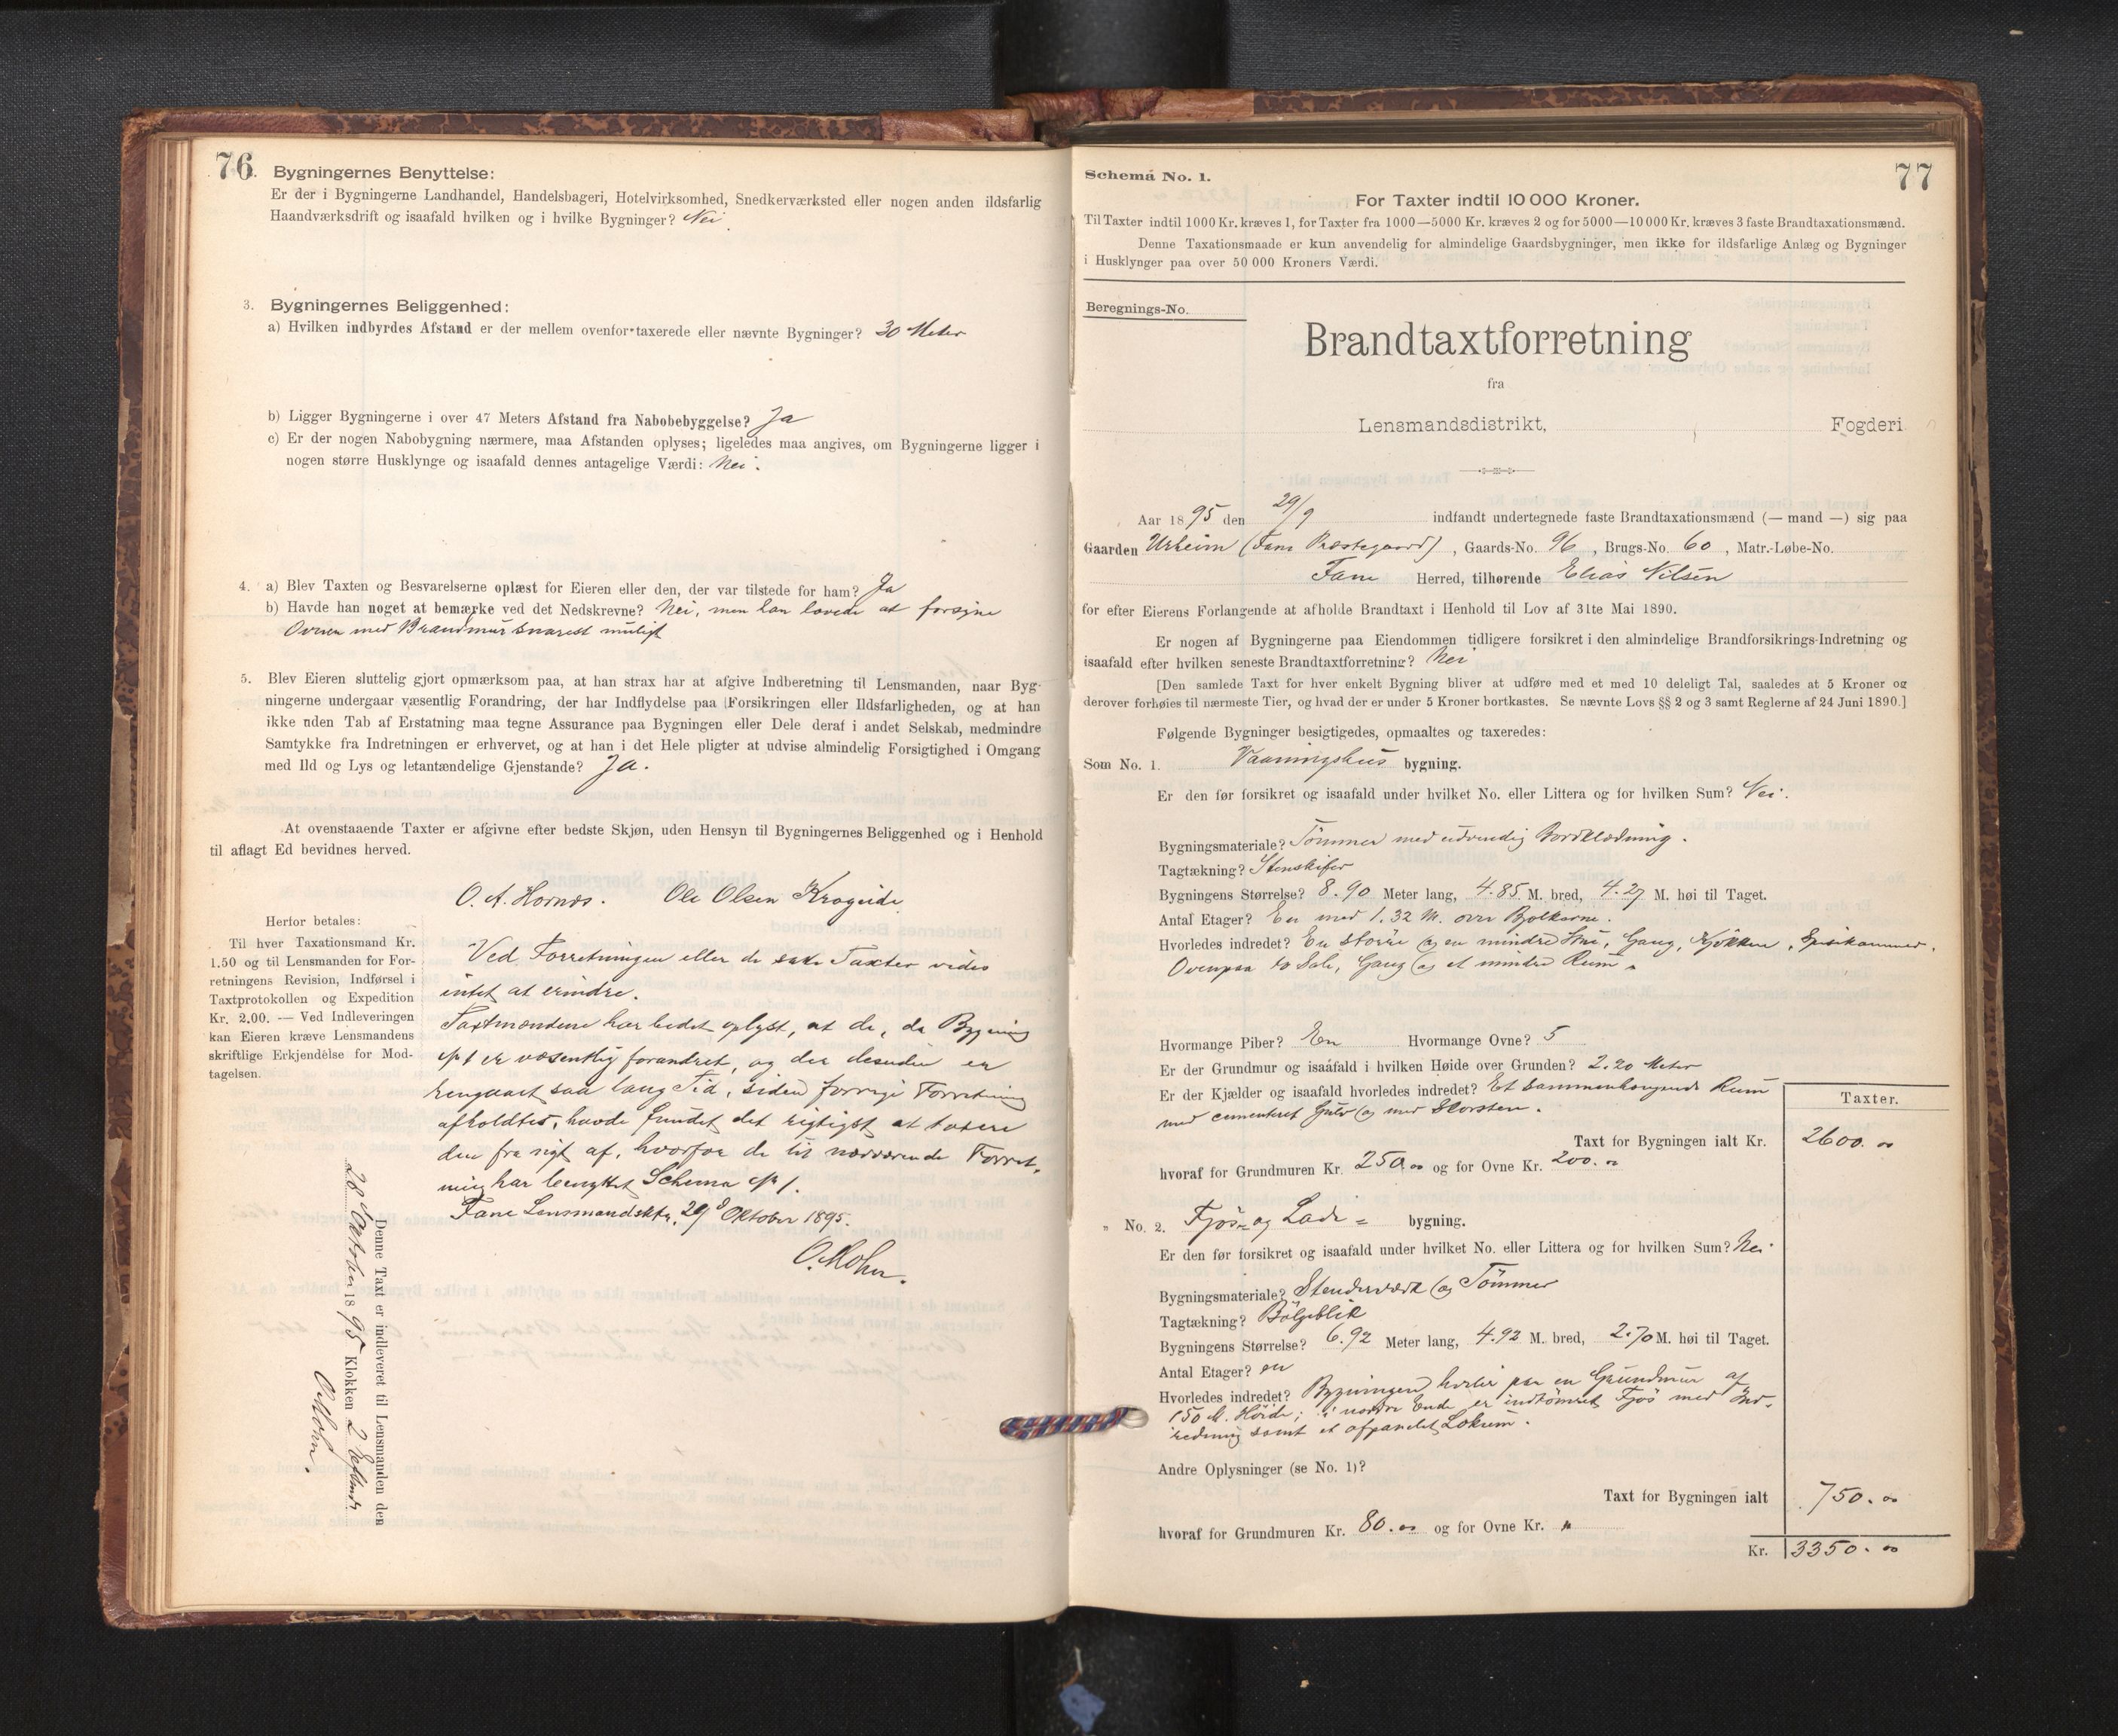 76.
Bygningernes Benyttelse:
Er der i Bygningerne Landhandel, Handelsbageri, Hotelvirksomhed, Snedkerværksted eller nogen anden ildsfarlig
Haandværksdrift og isaafald hvilken og i hvilke Bygninger? Nei.
3. Bygningernes Beliggenhed:
a) Hvilken indbyrdes Afstand er der mellem ovenfor taxerede eller nævnte Bygninger? 30 Meter
b) Ligger Bygningerne i over 47 Meters Afstand fra Nabobebyggelse? Ja
c) Er der nogen Nabobygning nærmere, maa Afstanden oplyses; ligeledes maa angives, om Bygningerne ligger i
nogen større Husklynge og isaafald dennes antagelige Værdi: Nei.
4. a) Blev Taxten og Besvarelserne oplæst for Eieren eller den, der var tilstede for ham? Ja
b) Havde han noget at bemærke ved det Nedskrevne? Nei, men han lovede at forsyne
Ovnen med Brandmur snarest muligt
5. Blev Eieren sluttelig gjort opmærksom paa, at han strax har at afgive Indberetning til Lensmanden, naar Byg-
ningerne undergaar væsentlig Forandring, der har Indflydelse paa Forsikringen eller Ildsfarligheden, og at han
ikke uden Tab af Erstatning maa tegne Assurance paa Bygningen eller Dele deraf i andet Selskab, medmindre
Samtykke fra Indretningen er erhvervet, og at han i det Hele pligter at udvise almindelig Forsigtighed i Omgang
med Ild og Lys og letantændelige Gjenstande? Ja.
At ovenstaaende Taxter er afgivne efter bedste Skjøn, uden Hensyn til Bygningernes Beliggenhed og i Henhold
til aflagt Ed bevidnes herved.
O. A. Hornæs. Ole Olsen Krogeide
Herfor betales:
Til hver Taxationsmand Kr.
1.50 og til Lensmanden for For-
retningens Revision, Indførsel i
Taxtprotokollen og Expedition
Kr. 2.00. — Ved Indleveringen
kan Eieren kræve Lensmandens
skriftlige Erkjendelse for Mod-
tagelsen.
Ved Forretningen eller de satte Taxter vides
intet at erindre.
Taxtmændene har bedet oplyst, at de, da Bygning
No 1 er væsentlig forandret, og der desuden er
hengaaet saa lang Tid, siden forrige Forretning
afholdtes, havde fundet det rigtigst at taxere
den fra nyt af, hvorfor de til nærværende Forret-
ning har benyttet Schema No 1.
Fane Lensmandsktr, 29d Oktober 1895.
O. Mohn.
Denne Taxt er indleveret til Lensmanden den
28 Oktober 1895 Klokken 2 Eftmd.
O. Mohn.
77
Schema No. 1.
For Taxter indtil 10 000 Kroner.
Til Taxter indtil 1000 Kr. kræves 1, for Taxter fra 1000—5000 Kr. kræves 2 og for 5000—10 000 Kr. kræves 3 faste Brandtaxationsmænd.
Denne Taxationsmaade er kun anvendelig for almindelige Gaardsbygninger, men ikke for ildsfarlige Anlæg og Bygninger
i Husklynger paa over 50 000 Kroners Værdi.
Beregnings-No.
Brandtaxtforretning
fra
Lensmandsdistrikt, Fogderi
Aar 1895 den 29/9 indfandt undertegnede faste Brandtaxationsmænd (— mand —) sig paa
Gaarden Urheim (Fane Præstegaard), Gaards-No. 96, Brugs-No. 60, Matr.-Løbe-No.
Fane Herred, tilhørende Elias Nilsen
for efter Eierens Forlangende at afholde Brandtaxt i Henhold til Lov af 31te Mai 1890.
Er nogen af Bygningerne paa Eiendommen tidligere forsikret i den almindelige Brandforsikrings-Indretning og
isaafald efter hvilken seneste Brandtaxtforretning? Nei
[Den samlede Taxt for hver enkelt Bygning bliver at udføre med et med 10 deleligt Tal, saaledes at 5 Kroner og
derover forhøies til nærmeste Tier, og hvad der er under 5 Kroner bortkastes. Se nævnte Lovs §§ 2 og 3 samt Reglerne af 24 Juni 1890.]
Følgende Bygninger besigtigedes, opmaaltes og taxeredes:
Som No. 1. Vaaningshus bygning.
Er den før forsikret og isaafald under hvilket No. eller Littera og for hvilken Sum? Nei.
Bygningsmateriale? Tömmer med udvendig Bordklædning.
Tagtækning? Stenskifer
Bygningens Størrelse? 8.90 Meter lang, 4.85 M. bred, 4.27 M. høi til Taget.
Antal Etager? En med 1.32 M. over Bjelkerne.
Hvorledes indredet? En större og en mindre Stue, Gang, Kjökken, Spisekammer.
Ovenpaa to Sale, Gang og et mindre Rum.
Hvormange Piber? En Hvormange Ovne? 5
Er der Grundmur og isaafald i hvilken Høide over Grunden? 2.20 Meter
Er der Kjælder og isaafald hvorledes indredet? Et sammenhængende Rum
med cementeret Gulv og med Skorsten.
Taxter.
Taxt for Bygningen ialt Kr. 2600.00
hvoraf for Grundmuren Kr. 250.00 og for Ovne Kr. 200.00
" No. 2. Fjös- og Lade- bygning.
Er den før forsikret og isaafald under hvilket No. eller Littera og for hvilken Sum? Nei.
Bygningsmateriale? Stenderværk og Tömmer
Tagtækning? Bölgeblik
Bygningens Størrelse? 6.92 Meter lang, 4.92 M. bred, 2.70 M. høi til Taget.
Antal Etager? en
Hvorledes indredet? Bygningen hviler paa en Grundmur af
150 M. Höide; i nordre Ende er indtömret Fjös med Ind-
redning samt et afpanelet Lokum.
Andre Oplysninger (se No. 1)?
Taxt for Bygningen ialt 750.00
hvoraf for Grundmuren Kr. 80.00 og for Ovne Kr. "
Kr. 3350.00